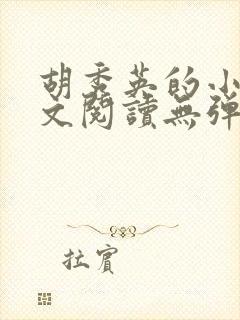 胡秀英的小
文閱讀無彈
拉賓